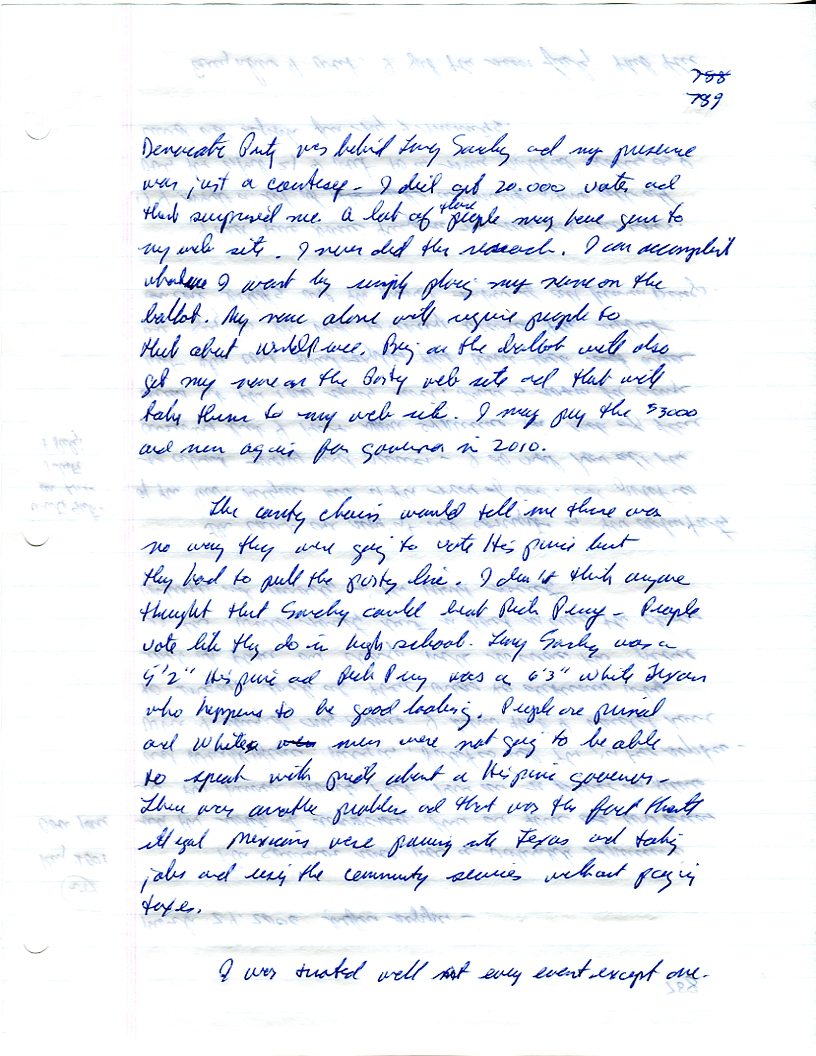 788
789
Democratic Party was behind Tony Sanchez and my presence
was just a courtesy - I did get 20.000 votes and
that surprised me. A lot of those people may have gone to
my web site. I never did the research. I can accomplish
whatever I want by simply placing my name on the
ballot. My name alone will require people to
think about World Peace. Being on the ballot will also
get my name on the Party web site and that will
take them to my web site. I may pay the $3000
and run again for governor in 2010.
The county chairs would tell me there was
no way they were going to vote Hispanic but
they had to pull the party line. I don't think anyone
thought that Sanchez could beat Rick Perry - People
vote like they do in high school. Tony Sanchez was a
5'2" Hispanic and Rick Perry was a 6'3" white Texan
who happens to be good looking. People are
and White men were not going to be able
to speak with pride about a Hispanic governor -
There was another problem and that was the fact that
illegal Mexicans were pouring into Texas and taking
jobs and using the community services without paying
taxes.
I was treated well at every event except one.